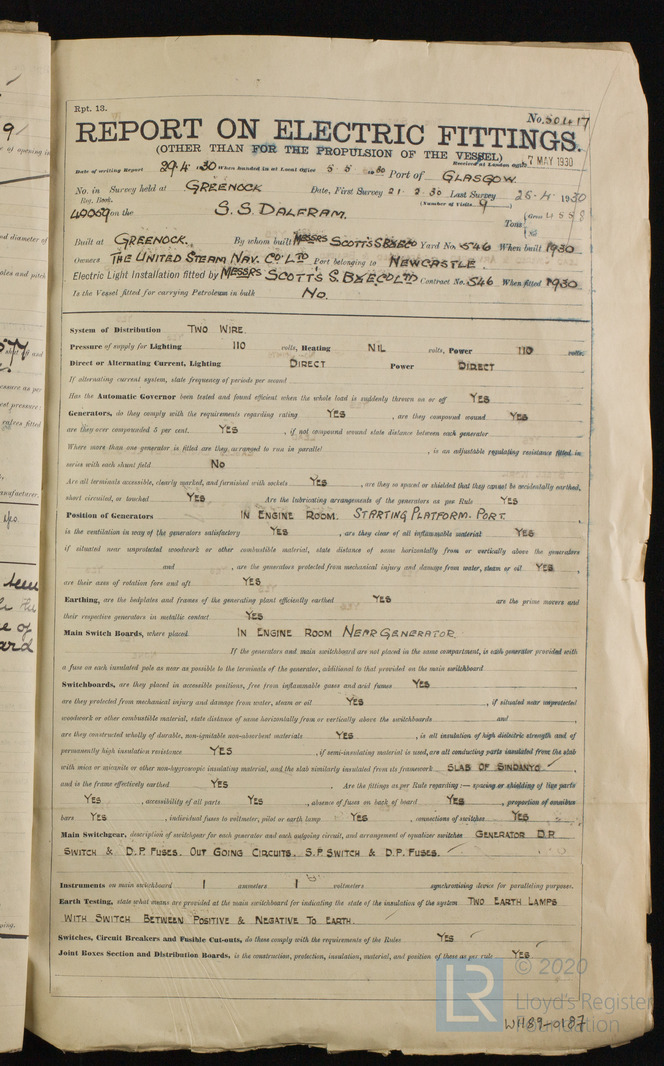 Rpt. 13.
No. 50417
REPORT ON ELECTRIC FITTINGS.
(OTHER THAN FOR THE PROPULSION OF THE VESSEL)
Date of writing Report 29.4.1930 When handed in at Local Office 5.5.1930 Port of GLASGOW. Received at London Office 7 MAY 1930
No. in Survey held at GREENOCK Date, First Survey 21.2.30 Last Survey 25.4.1930
Reg. Book. (Number of Visits 9)
40009 on the S.S. DALFRAM. Tons Gross 4558
Net
Built at GREENOCK. By whom built MESSRS SCOTT'S S.B&ECO Yard No. 546 When built 1930
Owners THE UNITED STEAM NAV. CO. LTD Port belonging to NEWCASTLE.
Electric Light Installation fitted by MESSRS SCOTT'S S.B&ECO LTD Contract No. 546 When fitted 1930
Is the Vessel fitted for carrying Petroleum in bulk No.
System of Distribution TWO WIRE.
Pressure of supply for Lighting 110 volts, Heating NIL volts, Power 110 volts.
Direct or Alternating Current, Lighting DIRECT Power DIRECT
If alternating current system, state frequency of periods per second
Has the Automatic Governor been tested and found efficient when the whole load is suddenly thrown on or off YES
Generators, do they comply with the requirements regarding rating YES , are they compound wound YES
are they over compounded 5 per cent. YES , if not compound wound state distance between each generator
Where more than one generator is fitted are they arranged to run in parallel , is an adjustable regulating resistance fitted in
series with each shunt field No
Are all terminals accessible, clearly marked, and furnished with sockets YES , are they so spaced or shielded that they cannot be accidentally earthed,
short circuited, or touched YES Are the lubricating arrangements of the generators as per Rule YES
Position of Generators IN ENGINE ROOM. STARTING PLATFORM. PORT.
is the ventilation in way of the generators satisfactory YES , are they clear of all inflammable material YES
if situated near unprotected woodwork or other combustible material, state distance of same horizontally from or vertically above the generators
and , are the generators protected from mechanical injury and damage from water, steam or oil YES,
are their axes of rotation fore and aft YES
Earthing, are the bedplates and frames of the generating plant efficiently earthed YES are the prime movers and
their respective generators in metallic contact YES
Main Switch Boards, where placed IN ENGINE ROOM NEAR GENERATOR.
If the generators and main switchboard are not placed in the same compartment, is each generator provided with
a fuse on each insulated pole as near as possible to the terminals of the generator, additional to that provided on the main switchboard
Switchboards, are they placed in accessible positions, free from inflammable gases and acid fumes YES
are they protected from mechanical injury and damage from water, steam or oil YES , if situated near unprotected
woodwork or other combustible material, state distance of same horizontally from or vertically above the switchboards and
are they constructed wholly of durable, non-ignitable non-absorbent materials YES , is all insulation of high dielectric strength and of
permanently high insulation resistance YES , if semi-insulating material is used, are all conducting parts insulated from the slab
with mica or micanite or other non-hygroscopic insulating material, and the slab similarly insulated from its framework SLAB OF SINDANYO
and is the frame effectively earthed YES . Are the fittings as per Rule regarding :— spacing or shielding of live parts
YES , accessibility of all parts YES , absence of fuses on back of board YES , proportion of omnibus
bars YES , individual fuses to voltmeter, pilot or earth lamp YES , connections of switches YES
Main Switchgear, description of switchgear for each generator and each outgoing circuit, and arrangement of equalizer switches GENERATOR D.P.
SWITCH & D.P. FUSES. OUT GOING CIRCUITS. S.P. SWITCH & D.P. FUSES.
Instruments on main switchboard 1 ammeters 1 voltmeters synchronising device for paralleling purposes.
Earth Testing, state what means are provided at the main switchboard for indicating the state of the insulation of the system TWO EARTH LAMPS
WITH SWITCH BETWEEN POSITIVE & NEGATIVE TO EARTH.
Switches, Circuit Breakers and Fusible Cut-outs, do these comply with the requirements of the Rules YES
Joint Boxes Section and Distribution Boards, is the construction, protection, insulation, material, and position of these as per rule YES
LR
© 2020
Lloyd's Register
Foundation
W1189-0187